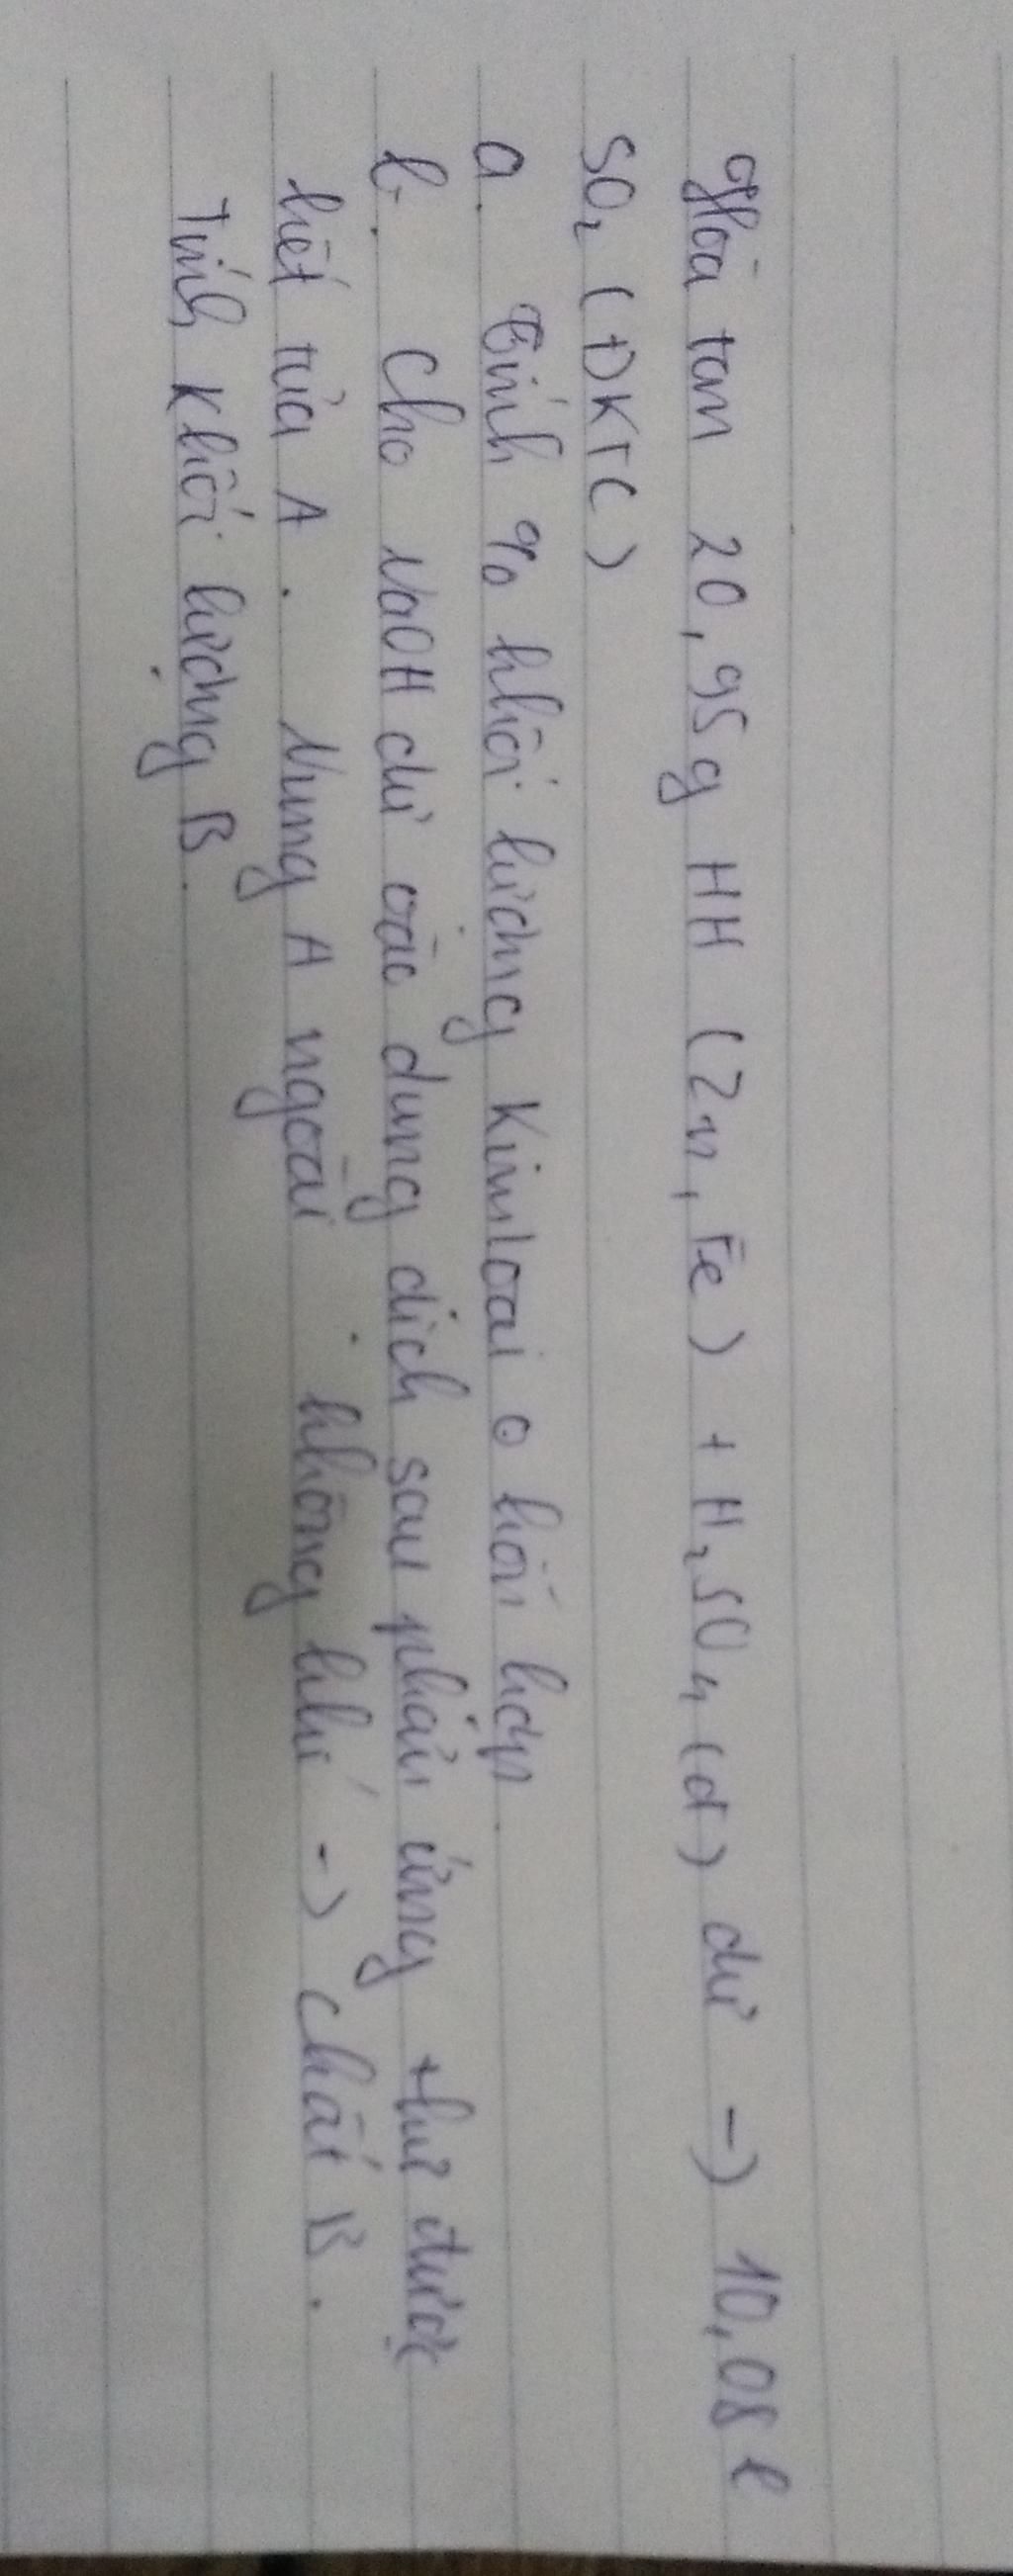 Hòa tan 20,95g HH (Zn, Fe) + H₂SO₄ (đ) dư -> 10,08 l
SO₂ (ĐKTC)
a. Tính % khối lượng Kim loại ở hỗn hợp.
b. Cho NaOH dư vào dung dịch sau phản ứng thu được
kết tủa A. Nung A ngoài không khí -> chất B.
Tính khối lượng B.